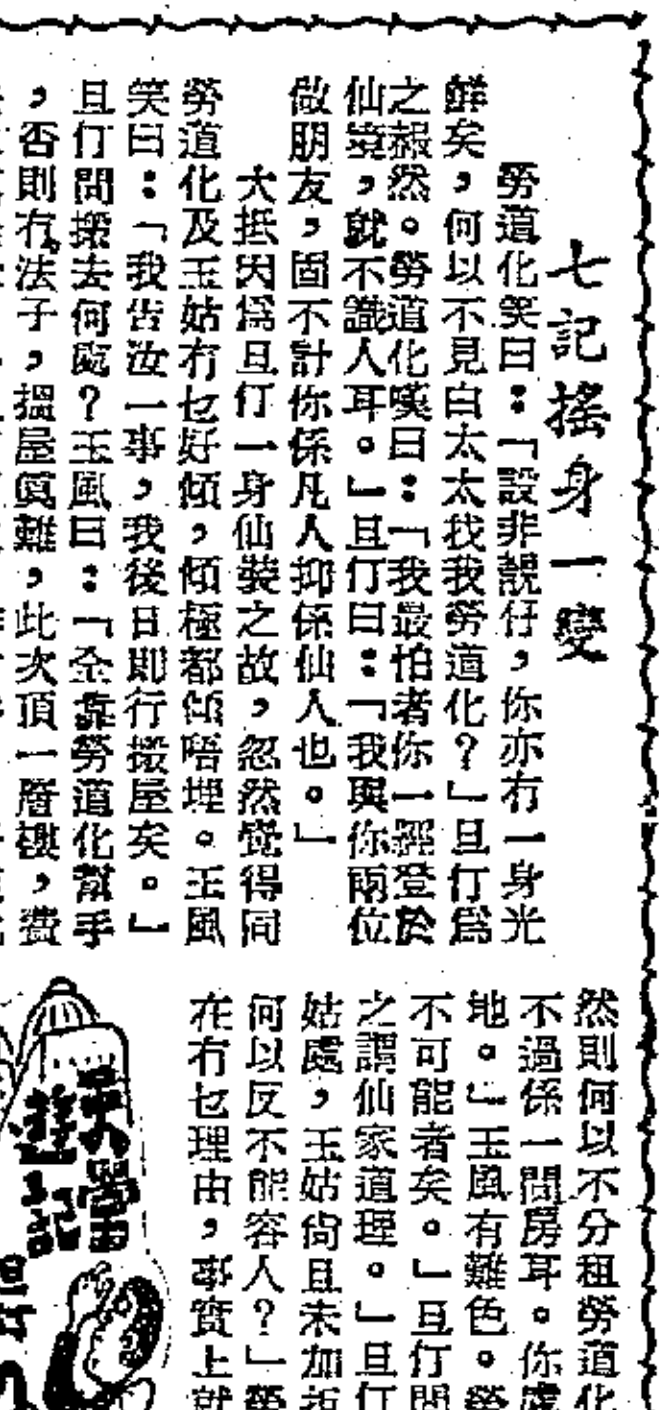 七記搖身一變
勞道化笑曰：「設非靚仔，你亦冇一身光
鮮矣，何以不見白太太找我勞道化？」且仃爲
之赧然。勞道化嘆曰：「我最怕者你一經登於
仙境，就不識人耳。」且仃曰：「我與你兩位
做朋友，固不計你係凡人抑係仙人也。」
大抵因爲且仃一身仙裝之故，忽然覺得同
勞道化及玉姑冇乜好傾，傾極都傾唔埋。玉風
笑曰：「我告汝一事，我後日則行搬屋矣。」
且仃問搬去何處？玉風曰：「全靠勞道化幫手
，否則冇法子，搵屋眞難，此次頂一層樓，費
然則何以不分租勞道化
不過係一間房耳。你處
地。」玉風有難色。勞
不可能者矣。」且仃問
之謂仙家道理。」且仃
姑處，玉姑尙且未加拒
何以反不能容人？」勞
在冇乜理由，事實上就
遊記